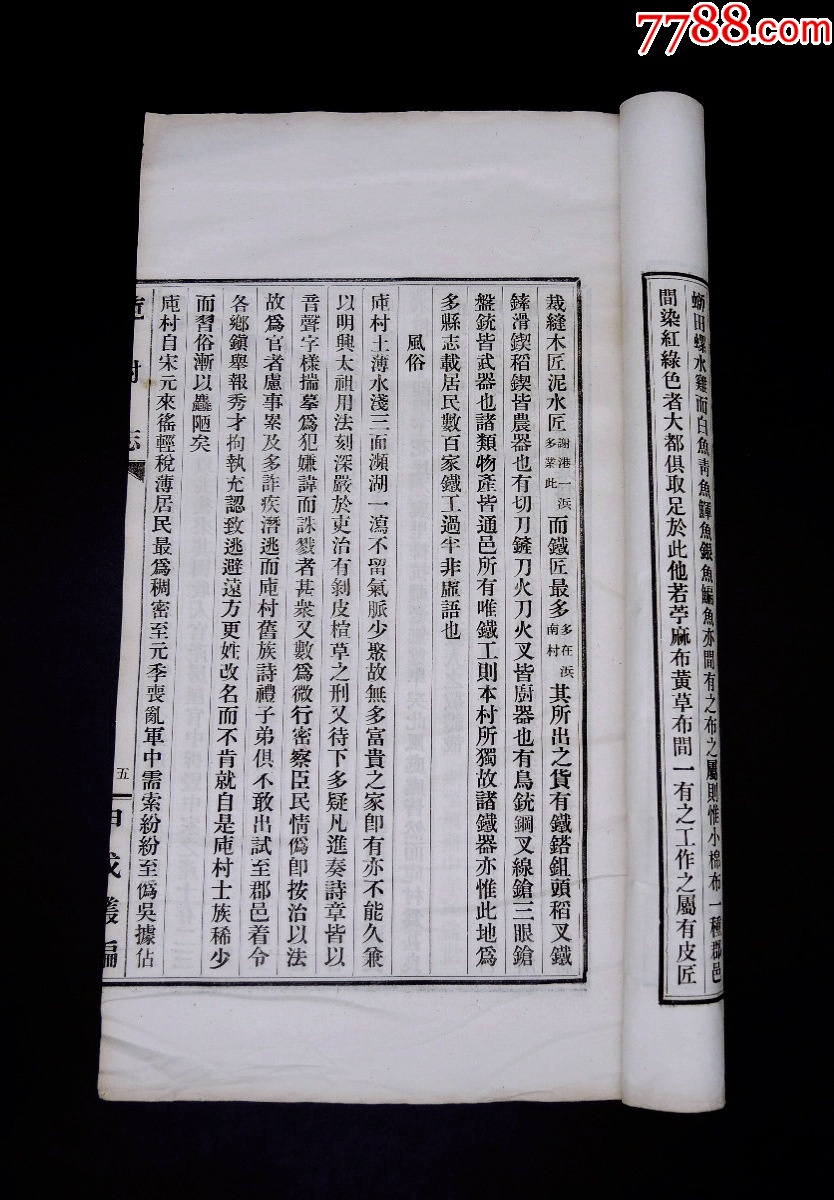 7788.com
蜥田螺水雞而白魚青魚鯶魚銀魚鯿魚亦間有之布之屬則惟小棉布一種郡邑
間染紅綠色者大都俱取足於此他若苧麻布黃草布間一有之工作之屬有皮匠
裁縫木匠泥水匠謝港一浜多業此而鐵匠最多多在浜南村其所出之貨有鐵鎝鉏頭稻叉鐵
鎋滑鍥稻鍥皆農器也有切刀鏟刀火刀火叉皆廚器也有鳥銃鋼叉線鎗三眼鎗
盤銃皆武器也諸類物產皆通邑所有唯鐵工則本村所獨故諸鐵器亦惟此地為
多縣志載居民數百家鐵工過半非虛語也
風俗
庉村土薄水淺三面瀕湖一瀉不留氣脈少聚故無多富貴之家卽有亦不能久兼
以明興太祖用法刻深嚴於吏治有剝皮楦草之刑又待下多疑凡進奏詩章皆以
音聲字樣揣摹為犯嫌諱而誅戮者甚衆又數為微行密察臣民情偽卽按治以法
故為官者慮事累及多詐疾潛逃而庉村舊族詩禮子弟俱不敢出試至郡邑着令
各鄉鎮舉報秀才拘執充認致逃避遠方更姓改名而不肯就自是庉村士族稀少
而習俗漸以蠢陋矣
庉村自宋元來徭輕稅薄居民最為稠密至元季喪亂軍中需索紛紛至偽吳據佔
村志
五
甲戌叢編